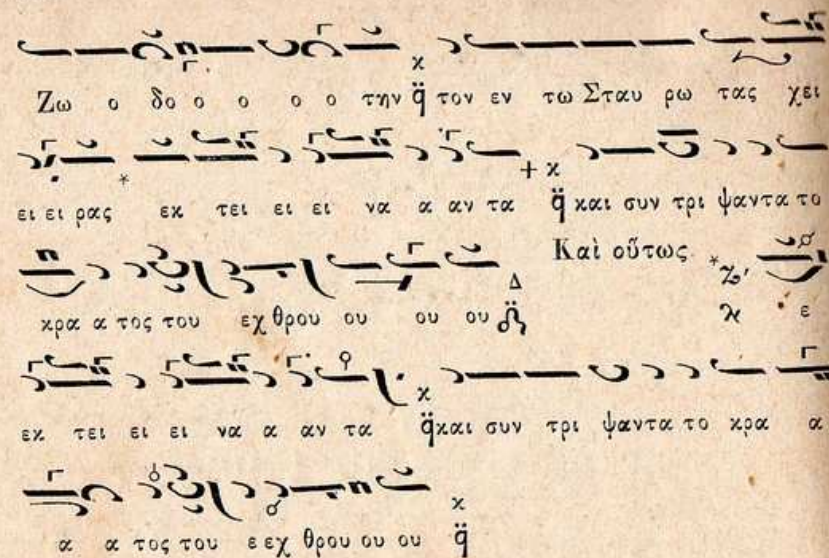 Ζω ο δο ο ο ο ο την κ ᾳ̈ τον εν τω Σταυ ρω τας χει
ει ει ρας * εκ τει ει ει να α αν τα + κ ᾳ̈ και συν τρι ψαντα το
κρα α τος του εχ θρου ου ου ου Δ Καὶ οὕτως * ζ' ε
εκ τει ει ει να α αν τα κ ᾳ̈ και συν τρι ψαντα το κρα α
α α τος του ε εχ θρου ου ου κ ᾳ̈